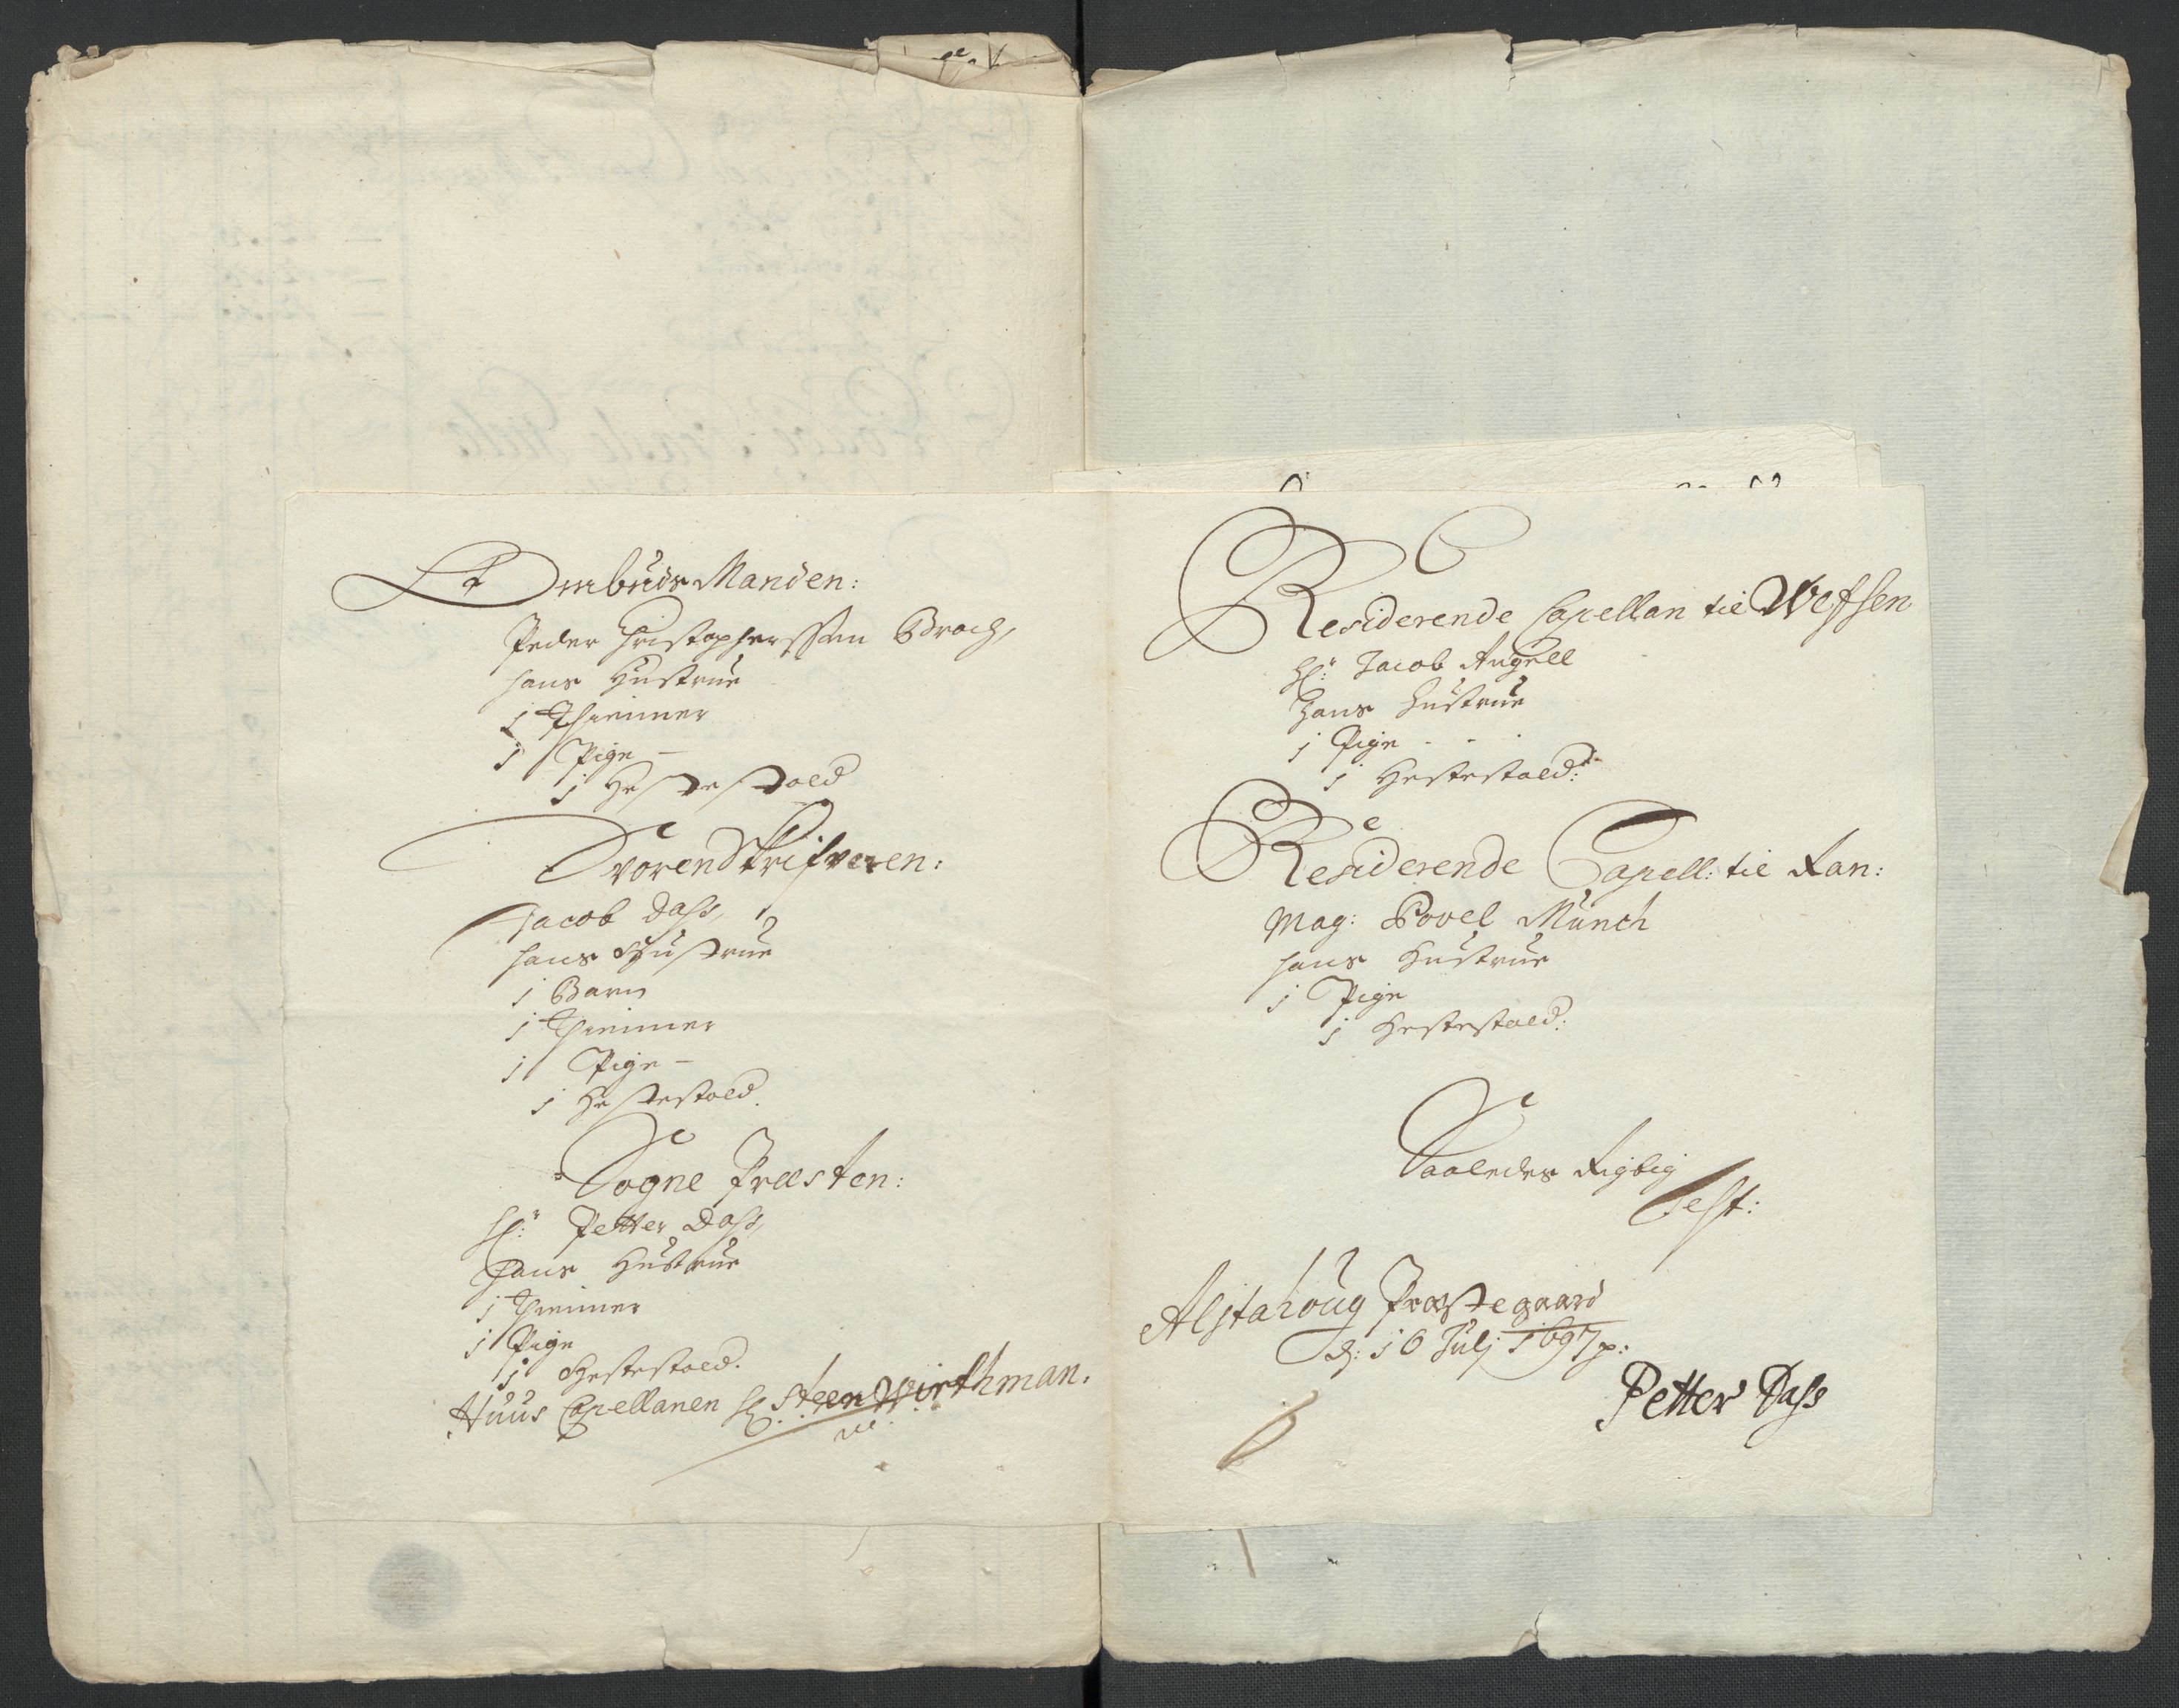 OmbudsManden:
Peder Christopherssøn Broch,
hans Hustrue
1 Thiener
1 Pige –
1 Hestestold
SvorenSkrifveren:
Jacob Dass,
hans Hustrue
1 Barn
1 Thiener
1 Pige –
1 Hestestold.
Sogne Præsten:
Hr: Petter Dass,
Hans Hustrue
1 Thiener
1 Pige
1 Hestestold.
Huus Capellanen Hr Steen Wirthman.
Residerende Capellan til Wefsen
Hr: Jacob Angell
Hans Hustrue
1 Pige
1 Hestestold:
Residerende Capell: til Ran:
Mag: Povel Munch
hans Hustrue
1 Pige
1 Hestestold:
Saaledes Rigtig
Test:
Alstahoug Præstegaard
d: 16 Julj 1697
Petter Dass